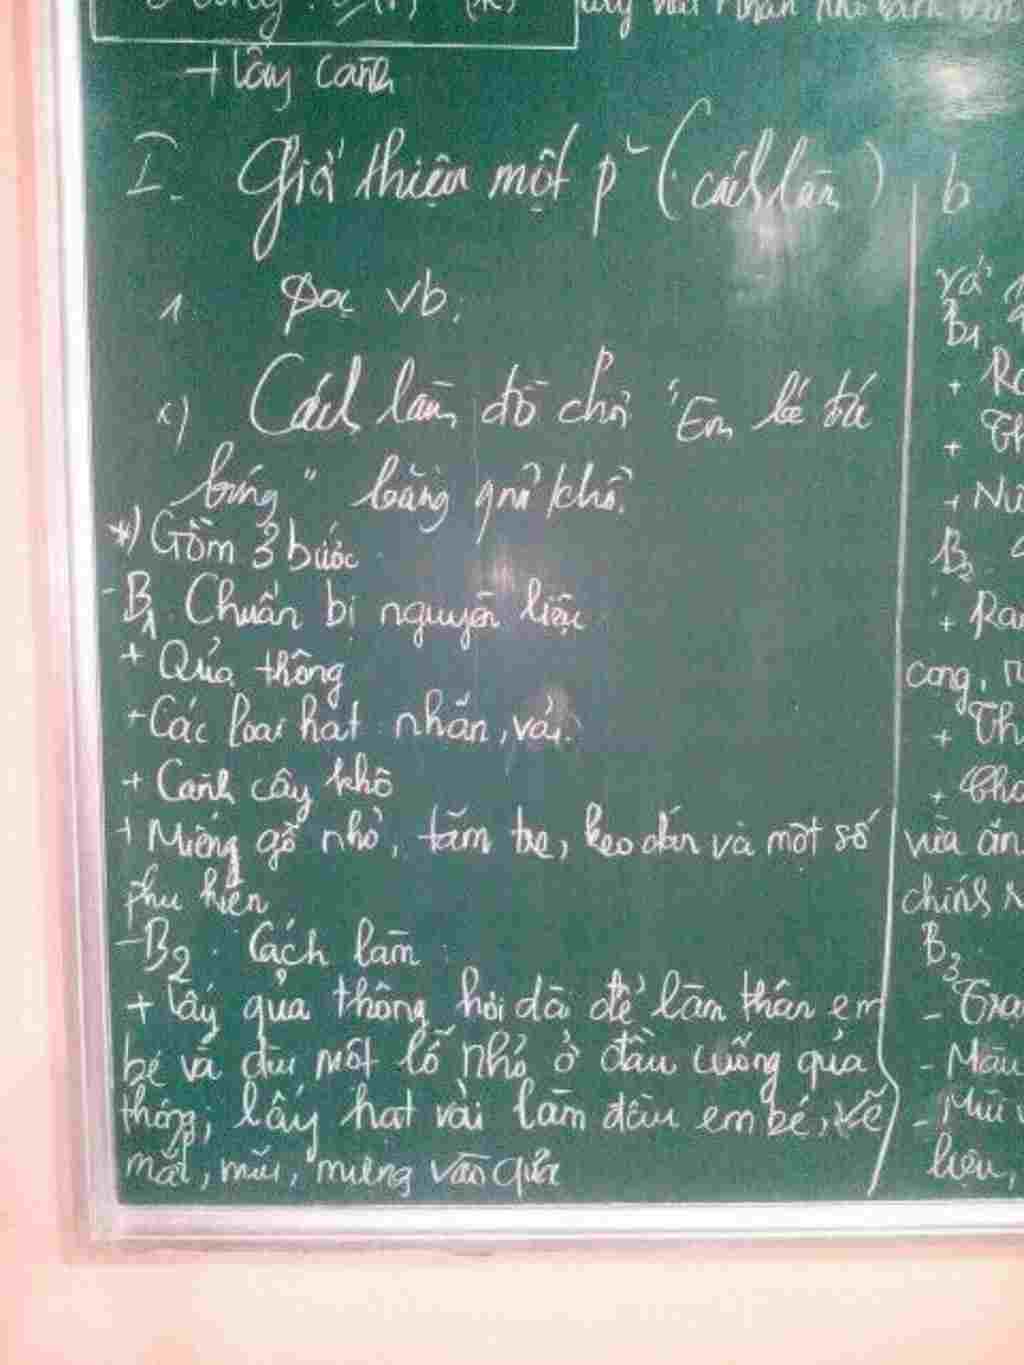 + Cây cảnh
I. Giới thiệu một p² (cách làm)
1. Đọc vb:
a) Cách làm đồ chơi "Em bé đá
bóng" bằng quả khô.
*) Gồm 3 bước
- B1. Chuẩn bị nguyên liệu
+ Quả thông
+ Các loại hạt nhãn, vải.
+ Cành cây khô
+ Miếng gỗ nhỏ, tăm tre, keo dán và một số
phụ kiện
- B2. Cách làm
+ Lấy quả thông hơi dài để làm thân em
bé và dùi một lỗ nhỏ ở đầu cuống quả
thông; lấy hạt vải làm đầu em bé, vẽ
mắt, mũi, miệng vào quả
b
B1
+
+
+ Nư
B2
+ Rau
cong,
+ Th
+
vừa ăn
chính
B3.
- Tran
- Màu
- Mùi v
liệu,